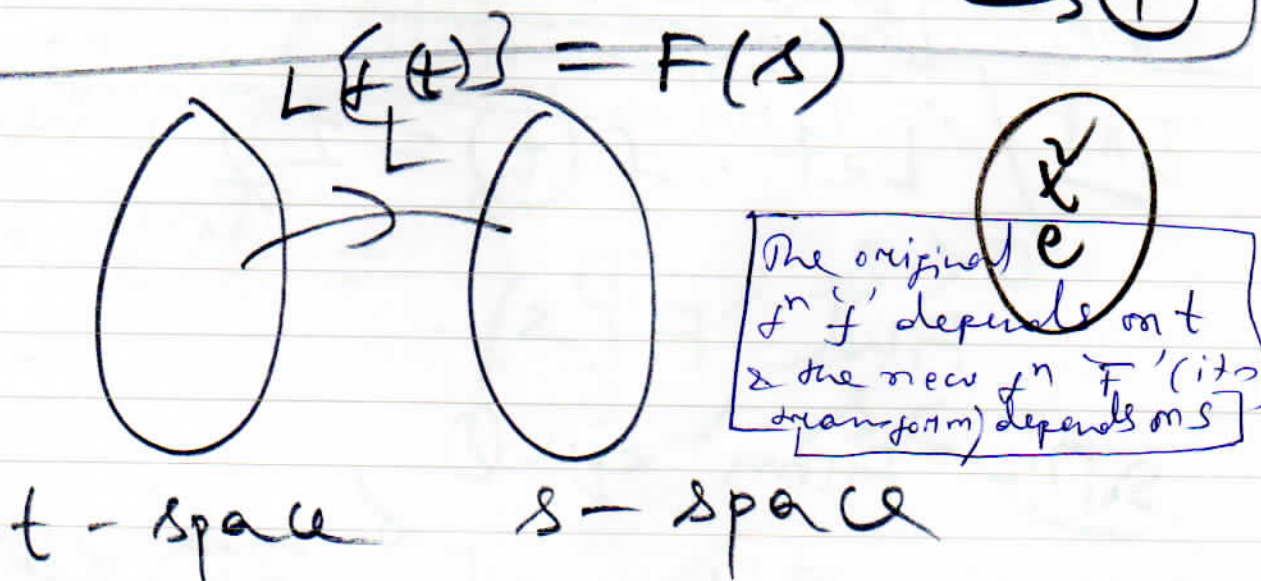 ①
L{f(t)} = F(s)
L
t²
e
The original
fⁿ 'f' depends on t
& the new fⁿ 'F' (its
transform) depends on s
t - space
s - space